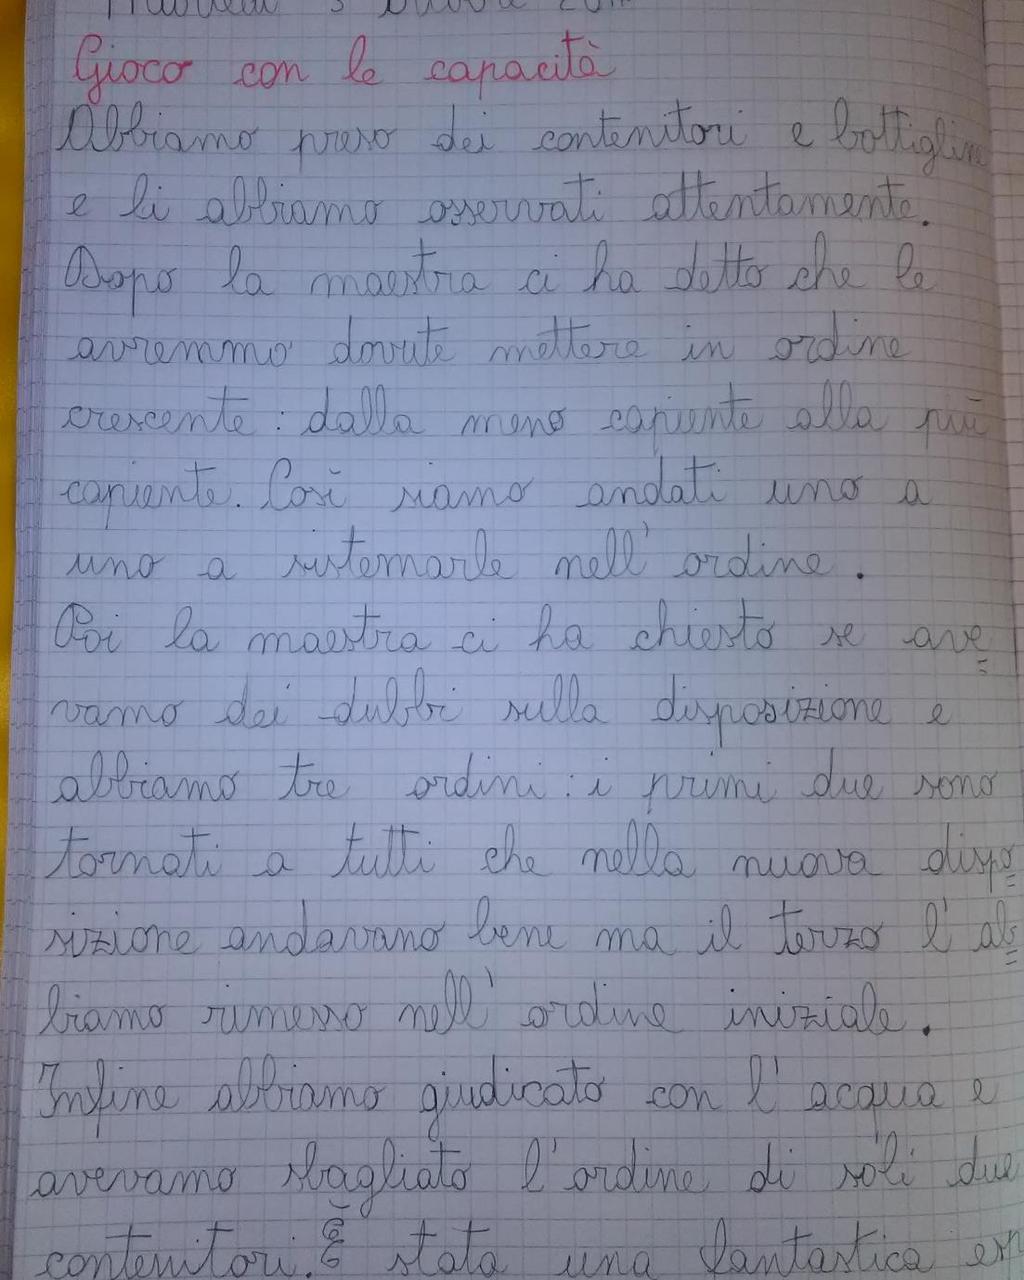 Gioco con le capacità
Abbiamo preso dei contenitori e bottiglin
e li abbiamo osservati attentamente.
Dopo la maestra ci ha detto che le
avremmo dovute mettere in ordine
crescente: dalla meno capiente alla più
capiente. Così siamo andati uno a
uno a sistemarle nell'ordine.
Poi la maestra ci ha chiesto se ave=
vamo dei dubbi sulla disposizione e
abbiamo tre ordini: i primi due sono
tornati a tutti che nella nuova dispo=
sizione andavano bene ma il terzo l'ab=
biamo rimesso nell'ordine iniziale.
Infine abbiamo giudicato con l'acqua e
avevamo sbagliato l'ordine di soli due
contenitori. È stata una fantastica esp